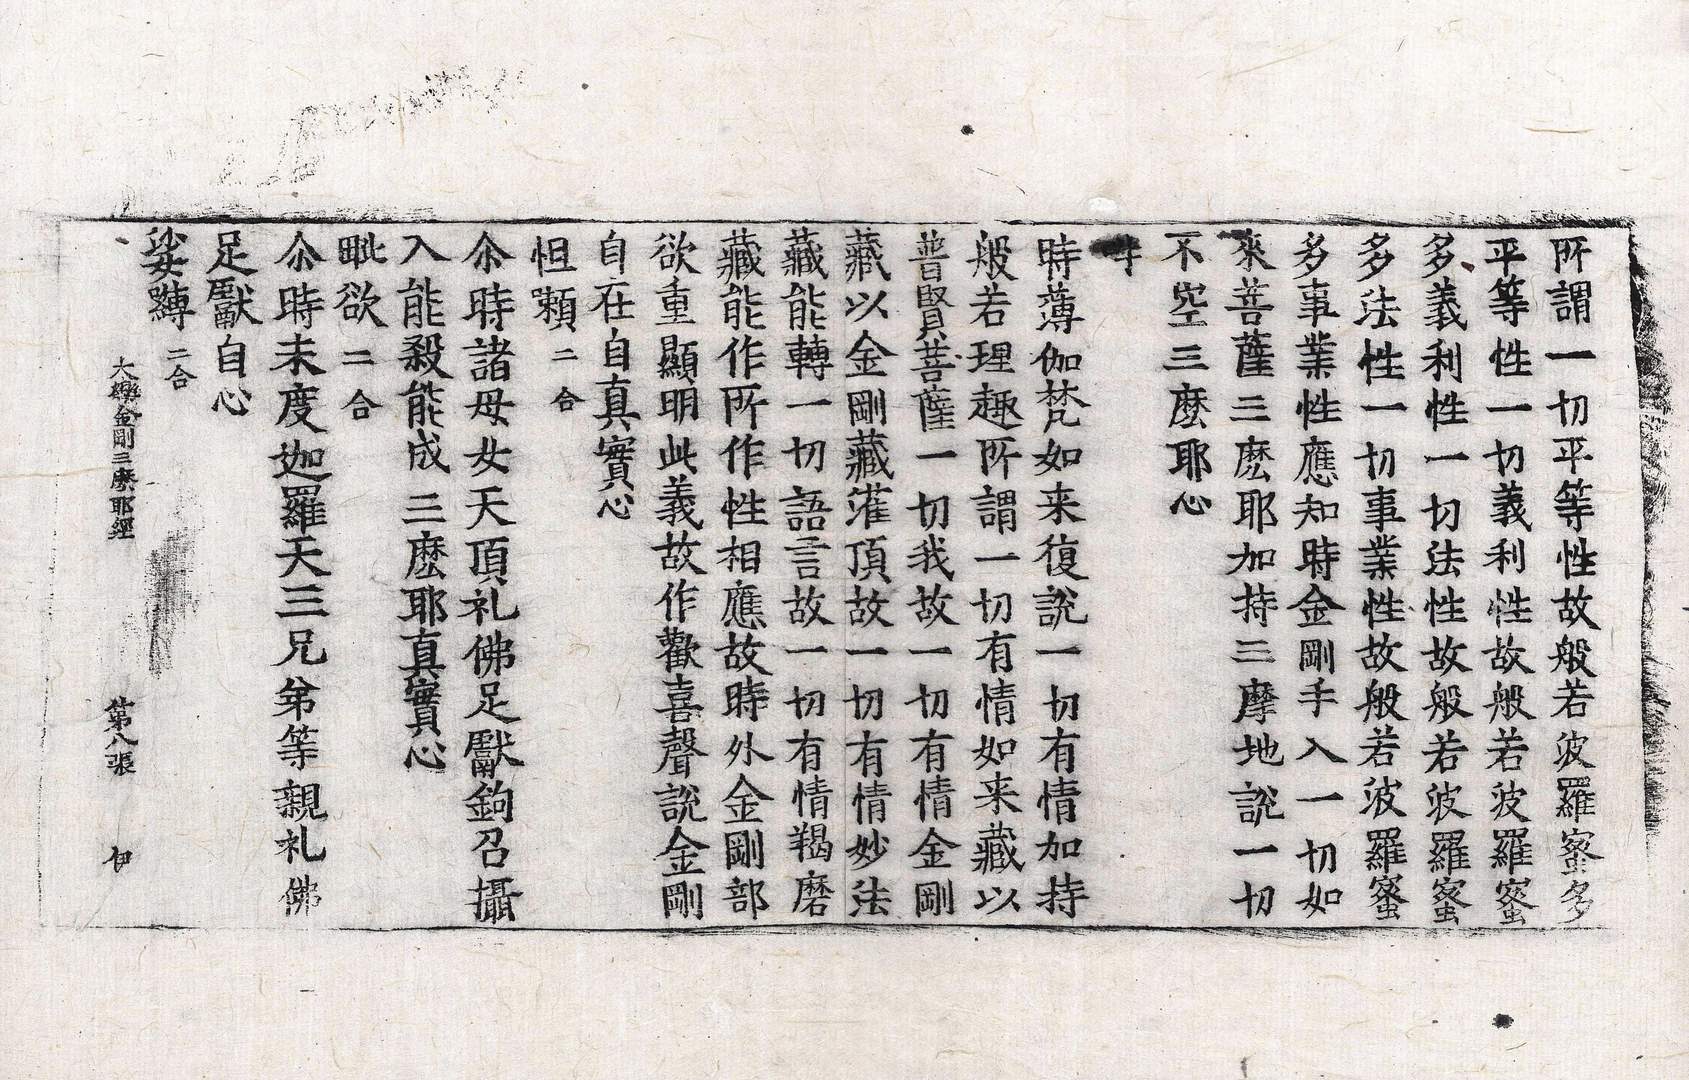 所謂一切平等性故般若波羅蜜多
平等性一切義利性故般若波羅蜜
多義利性一切法性故般若波羅蜜
多法性一切事業性故般若波羅蜜
多事業性應知時金剛手入一切如
來菩薩三麼耶加持三摩地說一切
不空三麼耶心
吽
時薄伽梵如来復說一切有情加持
般若理趣所謂一切有情如来藏以
普賢菩薩一切我故一切有情金剛
藏以金剛藏灌頂故一切有情妙法
藏能轉一切語言故一切有情羯磨
藏能作所作性相應故時外金剛部
欲重顯明此義故作歡喜聲說金剛
自在自真實心
怛嚩二合
尒時諸母女天頂礼佛足獻鉤召攝
入能殺能成三麼耶真實心
毗欲二合
尒時末度迦羅天三兄弟等親礼佛
足獻自心
娑嚩二合
大樂金剛三麽耶經 第八張 伊